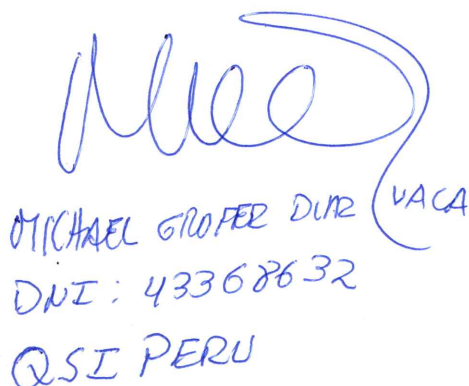 MICHAEL GROFER DIAZ VACA
DNI: 43368632
QSI PERU